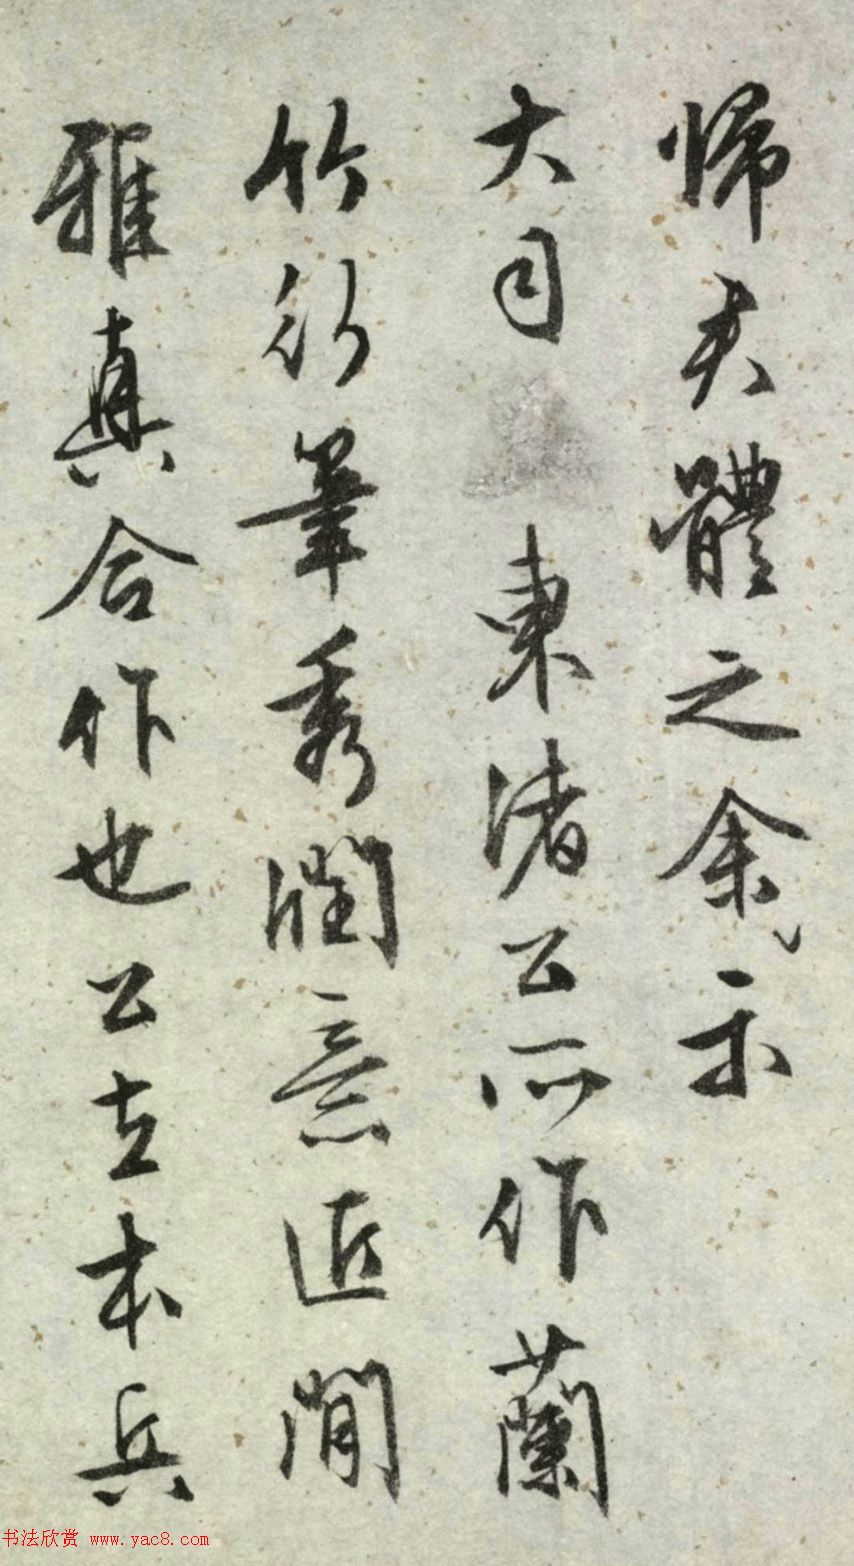 體之余示
大司東渚公所作蘭
竹行筆秀潤意匠閒
雅真合作也公在本兵
书法欣赏 www.yac8.com